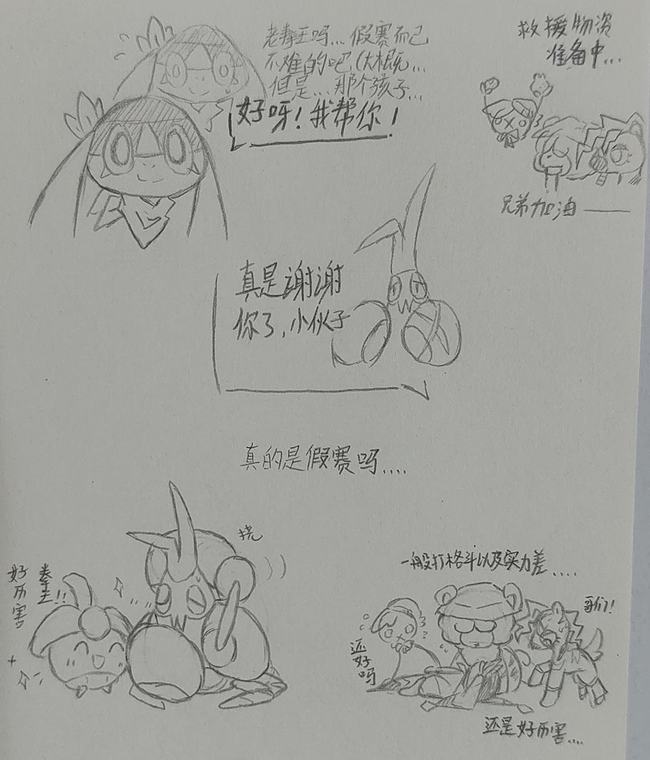 老拳王吗... 假赛而已
不难的吧(大概...
但是... 那个孩子...
好呀！我帮你！
救援物资
准备中...
兄弟加油——
真是谢谢
你了，小伙子
真的是假赛吗....
挠
拳王!!
好厉害
一般打格斗以及实力差....
哥们！
还好吗
还是好厉害....